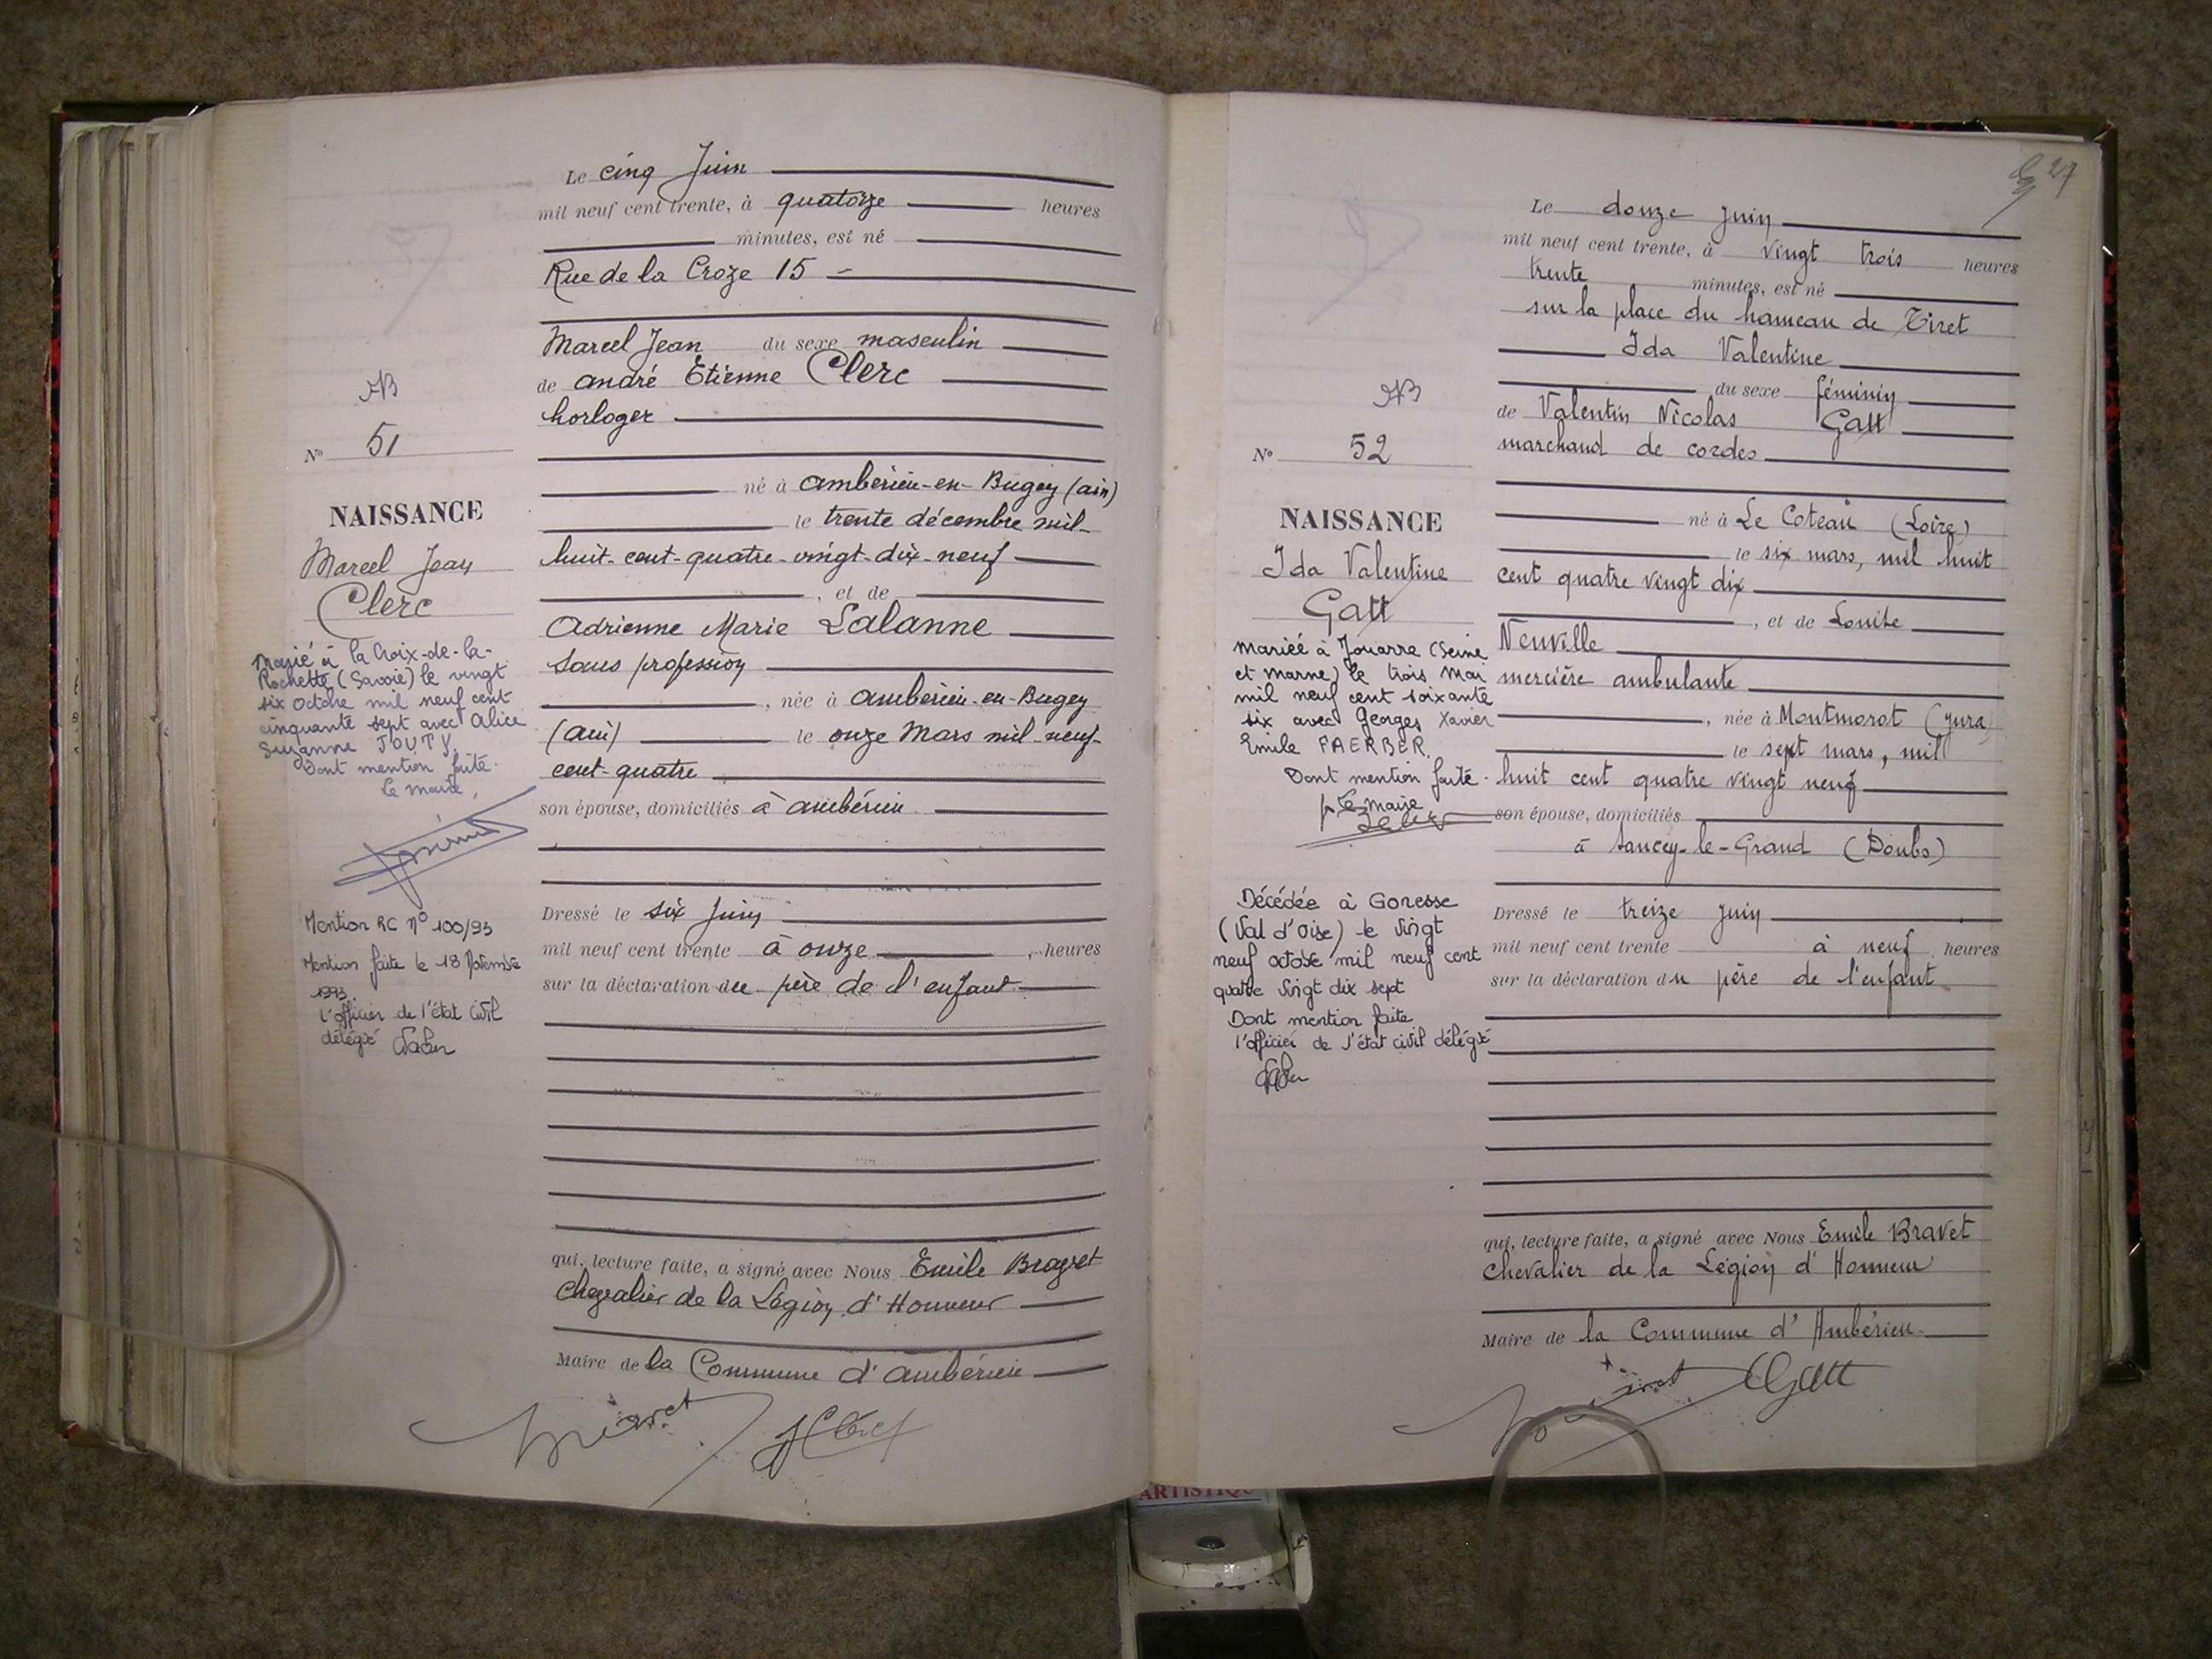 Le cinq Juin
mil neuf cent trente, à quatorze heures
minutes, est né
Rue de la Croze 15 -
Marcel Jean du sexe masculin
de andré Etienne Clerc
horloger
né à ambérieu-en-Bugey (ain)
le trente décembre mil-
huit-cent-quatre-vingt-dix-neuf
, et de
Adrienne Marie Lalanne
sans profession
, née à ambérieu-en-Bugey
(ain) le onze Mars mil-neuf-
cent-quatre
son épouse, domiciliés à ambérieu
Dressé le six Juin
mil neuf cent trente à onze , heures
sur la déclaration du père de l'enfant
qui, lecture faite, a signé avec Nous Emile Bravet
Chevalier de la Légion d'Honneur
Maire de la Commune d'ambérieu
Bravet
AClerc
AB
N° 51
NAISSANCE
Marcel Jean
Clerc
Marié à la Croix-de-la-
Rochette (Savoie) le vingt
six octobre mil neuf cent
cinquante sept avec Alice
Suzanne JOUTY.
Dont mention faite.
Le maire,
Mention RC n° 100/93
Mention faite le 18 Novembre
1993.
l'officier de l'état civil
délégué
27
Le douze juin
mil neuf cent trente, à vingt trois heures
trente minutes, est né
sur la place du hameau de Tiret
Ida Valentine
du sexe féminin
de Valentin Nicolas Gatt
marchand de cordes
né à Le Coteau (Loire)
le six mars, mil huit
cent quatre vingt dix
, et de Louise
Neuville
mercière ambulante
, née à Montmorot (Jura)
le sept mars, mil
huit cent quatre vingt neuf
son épouse, domiciliés
à Sancey-le-Grand (Doubs)
Dressé le treize juin
mil neuf cent trente à neuf heures
sur la déclaration du père de l'enfant
qui, lecture faite, a signé avec Nous Emile Bravet
Chevalier de la Légion d'Honneur
Maire de la Commune d'Ambérieu
Bravet
Gatt
AB
N° 52
NAISSANCE
Ida Valentine
Gatt
Mariée à Jouarre (Seine
et Marne) le trois Mai
mil neuf cent soixante
six avec Georges Xavier
Emile FAERBER.
Dont mention faite.
p Le maire
Décédée à Gonesse
(Val d'Oise) le vingt
neuf octobre mil neuf cent
quatre vingt dix sept
Dont mention faite
l'officier de l'état civil délégué
ARTISTIQU